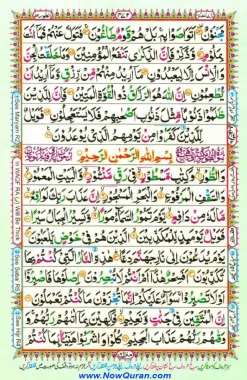 مَجْنُوْنٌ اَتَوَاصَوْا بِهٖ بَلْ هُمْ قَوْمٌ طَاغُوْنَ فَتَوَلَّ عَنْهُمْ فَمَآ اَنْتَ
بِمَلُوْمٍ وَّذَكِّرْ فَاِنَّ الذِّكْرٰى تَنْفَعُ الْمُؤْمِنِيْنَ وَمَا خَلَقْتُ الْجِنَّ
وَالْاِنْسَ اِلَّا لِيَعْبُدُوْنِ مَآ اُرِيْدُ مِنْهُمْ مِّنْ رِّزْقٍ وَّمَآ اُرِيْدُ اَنْ
يُّطْعِمُوْنِ اِنَّ اللّٰهَ هُوَ الرَّزَّاقُ ذُو الْقُوَّةِ الْمَتِيْنُ فَاِنَّ لِلَّذِيْنَ
ظَلَمُوْا ذَنُوْبًا مِّثْلَ ذَنُوْبِ اَصْحٰبِهِمْ فَلَا يَسْتَعْجِلُوْنِ فَوَيْلٌ
لِّلَّذِيْنَ كَفَرُوْا مِنْ يَّوْمِهِمُ الَّذِيْ يُوْعَدُوْنَ
بِسْمِ اللّٰهِ الرَّحْمٰنِ الرَّحِيْمِ
وَالطُّوْرِ وَكِتٰبٍ مَّسْطُوْرٍ فِيْ رَقٍّ مَّنْشُوْرٍ وَّالْبَيْتِ الْمَعْمُوْرِ
وَالسَّقْفِ الْمَرْفُوْعِ وَالْبَحْرِ الْمَسْجُوْرِ اِنَّ عَذَابَ رَبِّكَ لَوَاقِعٌ
مَّا لَهٗ مِنْ دَافِعٍ يَّوْمَ تَمُوْرُ السَّمَآءُ مَوْرًا وَّتَسِيْرُ الْجِبَالُ سَيْرًا
فَوَيْلٌ يَّوْمَئِذٍ لِّلْمُكَذِّبِيْنَ الَّذِيْنَ هُمْ فِيْ خَوْضٍ يَّلْعَبُوْنَ
يَوْمَ يُدَعُّوْنَ اِلٰى نَارِ جَهَنَّمَ دَعًّا هٰذِهِ النَّارُ الَّتِيْ كُنْتُمْ بِهَا
تُكَذِّبُوْنَ اَفَسِحْرٌ هٰذَآ اَمْ اَنْتُمْ لَا تُبْصِرُوْنَ اِصْلَوْهَا فَاصْبِرُوْٓا
اَوْ لَا تَصْبِرُوْا سَوَآءٌ عَلَيْكُمْ اِنَّمَا تُجْزَوْنَ مَا كُنْتُمْ تَعْمَلُوْنَ
اِنَّ الْمُتَّقِيْنَ فِيْ جَنّٰتٍ وَّنَعِيْمٍ فٰكِهِيْنَ بِمَآ اٰتٰىهُمْ رَبُّهُمْ وَوَقٰىهُمْ
رَبُّهُمْ عَذَابَ الْجَحِيْمِ كُلُوْا وَاشْرَبُوْا هَنِيْٓئًا بِمَا كُنْتُمْ
www.NowQuran.com